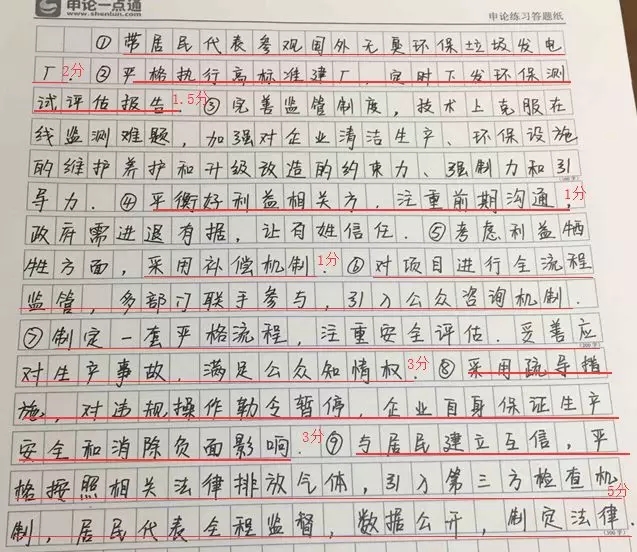 申论一点通
www.shenlun.com
申论练习答题纸
①带居民代表参观国外无臭环保垃圾发电
厂.2分②严格执行高标准建厂,定时下发环保测
试评估报告1.5分③完善监管制度,技术上克服在
线监测难题,加强对企业清洁生产、环保设施
的维护养护和升级改造的约束力、强制力和引
导力.④平衡好利益相关方,注重前期沟通,1分
政府需进退有据,让百姓信任.⑤考虑利益牺
牲方面,采用补偿机制.1分⑥对项目进行全流程
监管,多部门联手参与,引入公众咨询机制.
⑦制定一套严格流程,注重安全评估.妥善应
对生产事故,满足公众知情权.3分⑧采用疏导措
施,对违规操作勒令暂停,企业自身保证生产
安全和消除负面影响.3分⑨与居民建立互信,严
格按照相关法律排放气体,引入第三方检查机5分
制,居民代表全程监督,数据公开,制定法律